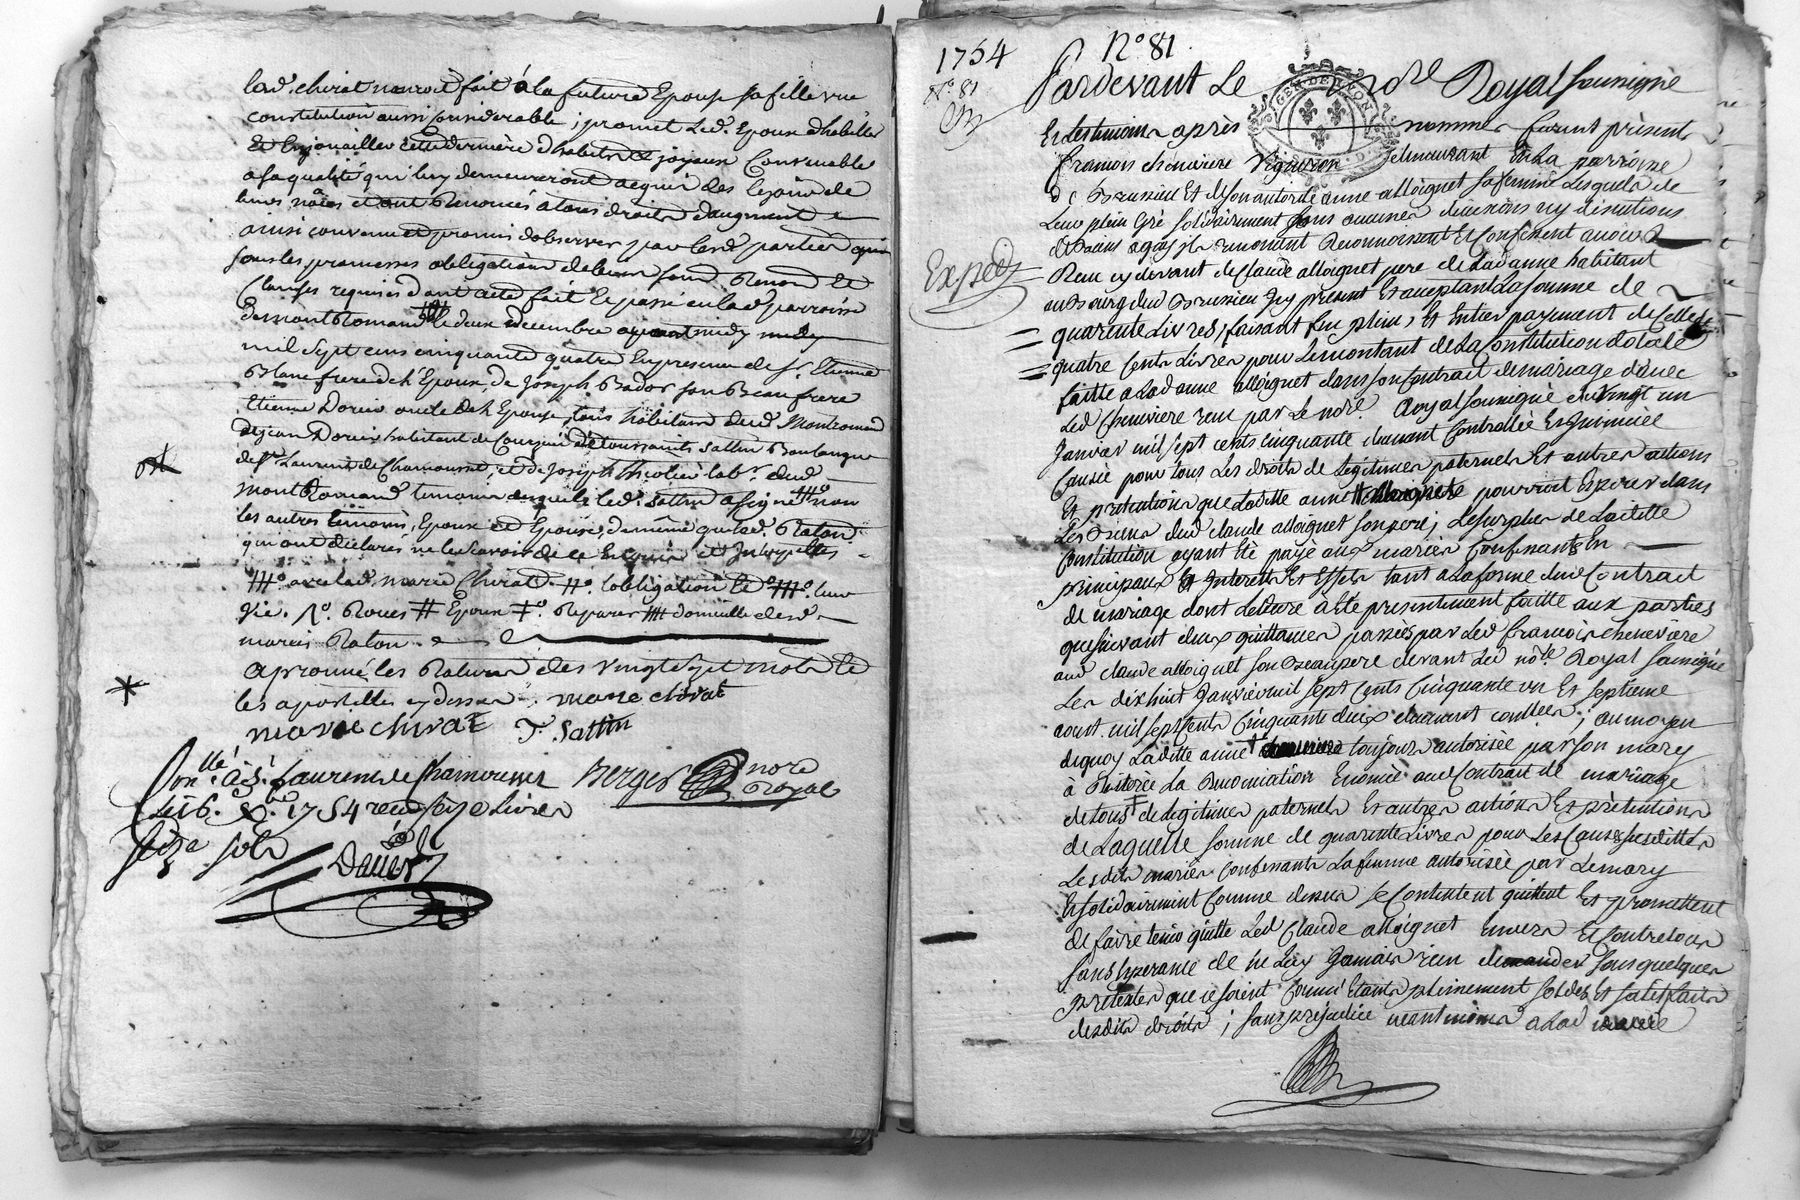 lad. chirat nauroit fait á la future Epouse sa fille une
constitution aussi considerable ; promet led. Epoux dhabiller
Et Enjoailler cette derniere dhabits & joyaux Convenable
a sa qualité qui luy demeureront acquis des
et ont Renoncés à tous droits daugment
ainsi convenu et promis dobserver par lesd. parties
sous les promesses obligations de leurs Renon. et
Clauses requises dont acte fait Et passé en lad. parroisse
de mont Romand le deux decembre avant midy
mil Sept cens cinquante quatre En presence de Sr. Etienne
Blanc frere de l'Epoux, de Joseph Bador son Beau frere
Etienne Dorin oncle de l'Epouse, tous habitans dud. Montromand
de jean Dorin habitant de Courzieu de toussaints Sattin Boulanger
de St. Laurent de Chamousset, et de Joseph labr. dud.
mont Romand temoins desquels led. Sattin a signé non
les autres temoins, Epoux et Epouse, de même que lad. Raton
qui ont déclarés ne le scavoir de ce Enquis et Interpellés
avec lad. marie Chirat. lobligation
vie. Roues Epoux Reparer domicille desd.
mariés Raton
aprouvé les Ratures des vingt sept mots Et
les apostilles cy dessus marie chirat
marie chirat T. Sattin
Conllé. à St. Laurent de Chamousset Berger nore Royal
Le 16. Xbre. 1754 reçu seize Livres
seize sols
1754 N° 81
N° 81
Pardevant Le nore. Royal Soussigné
Et les temoins après nommés furent présents
francois chenaviere Vigneron demeurant En La parroisse
de Brussieu Et de son autorité anne alloignet sa femme Lesquels de
Leur plein Gré solidairement sans aucunes divisions ny discutions
de Biens agissants Reconnoissent Et Confessent avoir
Reçu cy devant de Claude alloignet pere de Ladanne habitant
au Bourg dud Brussieu Icy present Et acceptant La somme de
Exped
quarente Livres, faisant fin plein, Et Entier payement de Celle de
quatre Cents Livres pour Le montant de La Constitution dotale
faitte a Lad anne alloignet dans son Contrait de mariage d'avec
Led Chenaviere reçu par Le nore. Royal Soussigné du vingt un
Janvier mil sept cents cinquante duement Controllée Et Insinuée
Causée pour tous Les droits de Legitimes paternels Et autres actions
Et pretentions que Laditte anne alloignet pourroit Esperer dans
Les Biens dud claude alloignet son pere ; Le surplus de Laditte
Constitution ayant été payé aux mariés Confessants En
principaux Et Interests Et Effets tant a La forme dud Contrait
de mariage dont Lecture à été presentement faitte aux parties
que suivant deux quittances passées par Led francois chenaviere
aud claude alloignet son Beaupere devant Led nore. Royal Soussigné
Les dix huit Janvier mil sept Cents Cinquante un Et septieme
aoust mil sept Cents Cinquante deux duement contllées ; au moyen
dequoy Laditte anne toujours autorisée par son mary
à Reiteré La Renonciation Enoncée aud Contrait de mariage
de tous de Legitimes paternels Et autres actions Et prétentions
de Laquelle somme de quarente Livres pour Les Causes susdittes
Lesdits mariés Confessants La femme autorisée par Le mary
Et solidairement Comme dessus se Contentent quittent Et promettent
de faire tenir quitte Led Claude alloignet Envers Et Contre tous
sans Esperance de ne Luy Jamais rien demander sous quelques
pretextes que ce soient Comme Etants pleinement soldés Et satisfaits
desdits droits ; sans préjudice neantmoins a Lad anne